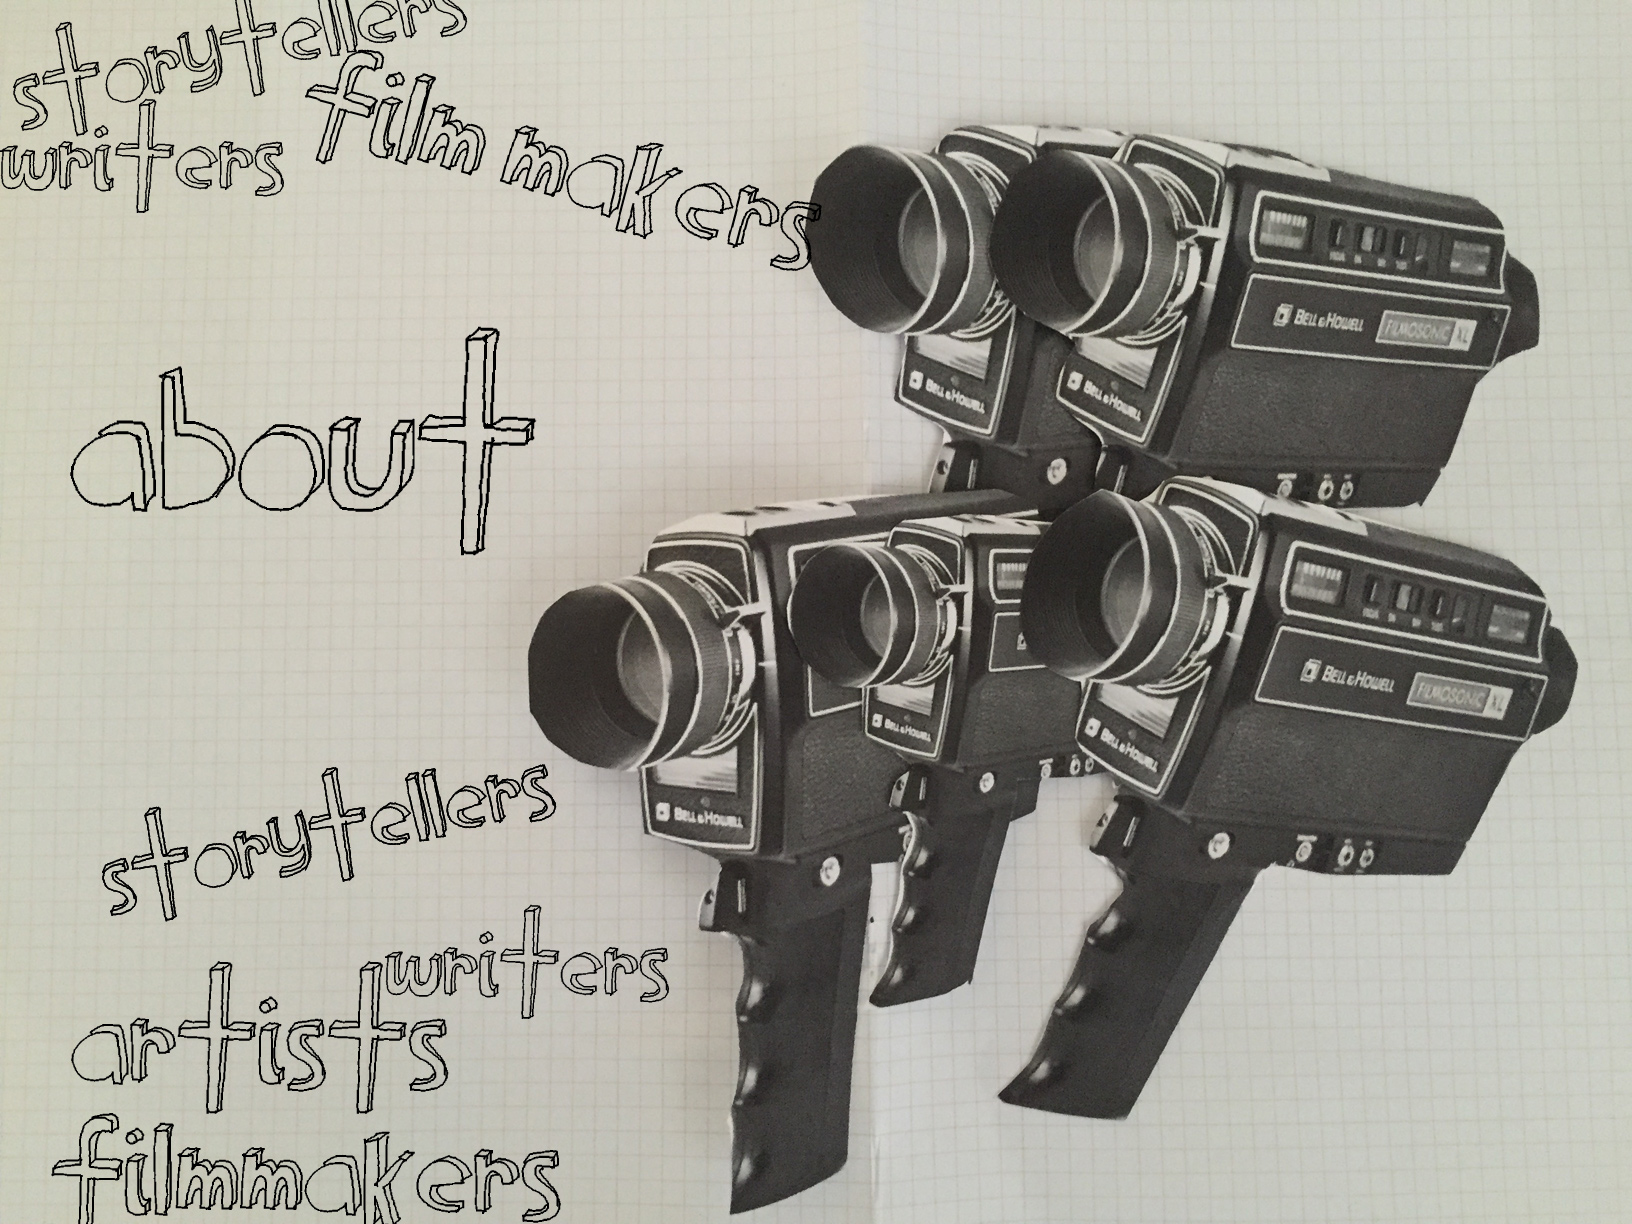 storytellers
writers
film makers
about
storytellers
writers
artists
filmmakers
BELL & HOWELL
FILMOSONIC XL
BELL & HOWELL
BELL & HOWELL
BELL & HOWELL
FILMOSONIC XL
BELL & HOWELL
BELL & HOWELL
BELL & HOWELL